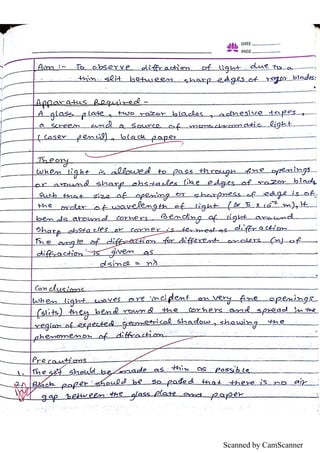 DATE
PAGE
Aim :- To observe diffraction of light due to a
thin slit between sharp edges of razor blades.
Apparatus Required -
A glass plate, two razor blades, adhesive tapes,
a screen and a source of monochromatic light
(laser pencil), black paper
Theory
When light is allowed to pass through fine openings
or around sharp obstacles like edges of razor blade
such that size of opening or sharpness of edge is of
the order of wavelength of light (≈ 5 x 10⁻⁷ m), it
bends around corners. Bending of light around
sharp obstacles or corner is termed as diffraction
The angle of diffraction for different orders (n) of
diffraction is given as
dsinθ = nλ
Conclusions
When light waves are incident on very fine openings
(slits) they bend round the corners and spread in the
region of expected geometrical shadow, showing the
phenomenon of diffraction.
Precautions
1. The slit should be made as thin as possible
2. Black paper should be so pasted that there is no air
gap between the glass plate and paper
Scanned by CamScanner